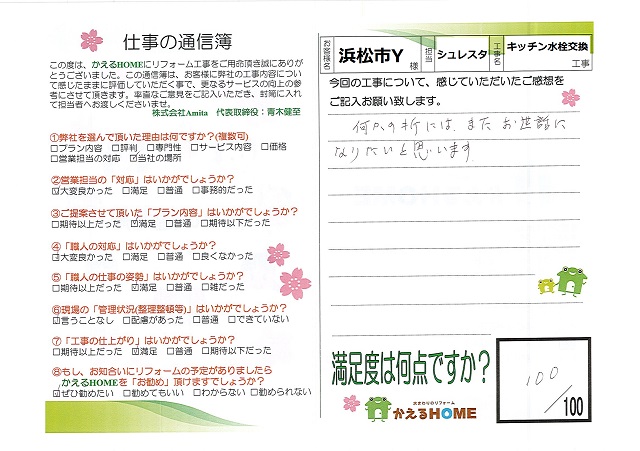 仕事の通信簿
この度は、かえるHOMEにリフォーム工事をご用命頂き誠にありが
とうございました。この通信簿は、お客様に弊社の工事内容につい
て感じたままに評価していただく事で、更なるサービスの向上の参
考にさせて頂きます。率直なご意見をご記入いただき、封筒に入れ
て担当者へお渡しくださいませ。
株式会社Amita 代表取締役：青木健至
①弊社を選んで頂いた理由は何ですか？(複数可)
□プラン内容 □評判 □専門性 □サービス内容 □価格
□営業担当の対応 ☑当社の場所
②営業担当の「対応」はいかがでしょうか？
☑大変良かった □満足 □普通 □事務的だった
③ご提案させて頂いた「プラン内容」はいかがでしょうか？
□期待以上だった ☑満足 □普通 □期待以下だった
④「職人の対応」はいかがでしょうか？
☑大変良かった □満足 □普通 □良くなかった
⑤「職人の仕事の姿勢」はいかがでしょうか？
□期待以上だった ☑満足 □普通 □雑だった
⑥現場の「管理状況(整理整頓等)」はいかがでしょうか？
☑言うことなし □配慮があった □普通 □できていない
⑦「工事の仕上がり」はいかがでしょうか？
□期待以上だった ☑満足 □普通 □期待以下だった
⑧もし、お知合いにリフォームの予定がありましたら
かえるHOMEを「お勧め」頂けますでしょうか？
☑ぜひ勧めたい □勧めてもいい □わからない □勧められない
お客様名 浜松市Y 様 担当 シュレスタ 工事名 キッチン水栓交換 工事
今回の工事について、感じていただいたご感想を
ご記入お願い致します。
何かの折には、またお世話に
なりたいと思います
満足度は何点ですか？
100/100
水まわりのリフォーム
かえるHOME